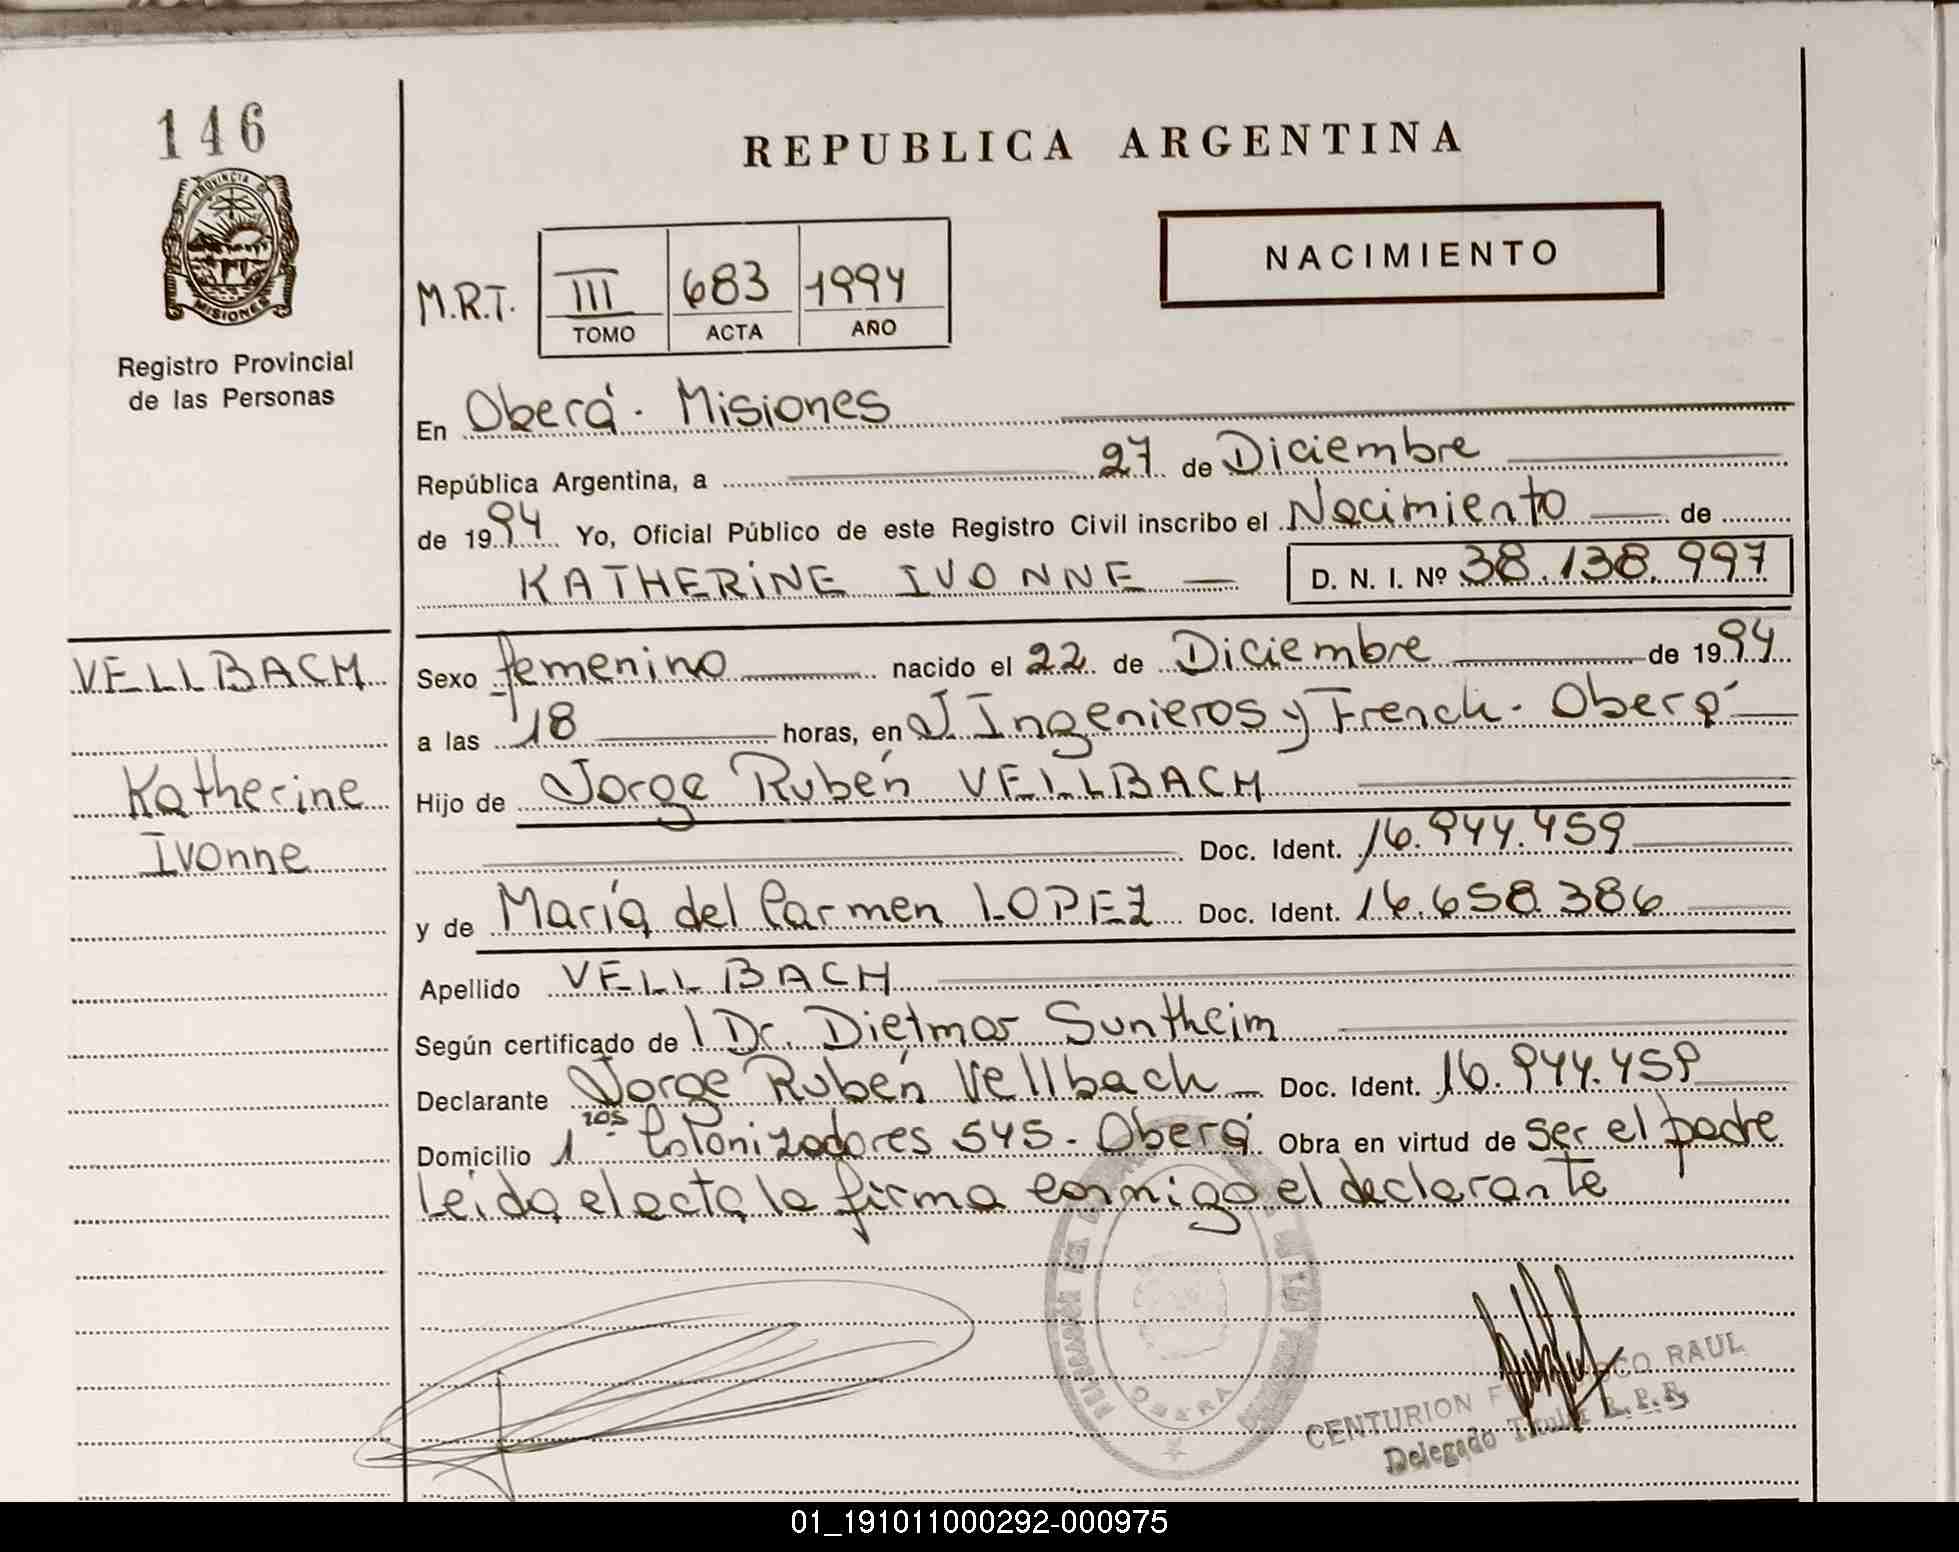 146
PROVINCIA DE
MISIONES
Registro Provincial
de las Personas
REPUBLICA ARGENTINA
NACIMIENTO
M.R.T. III 683 1994
TOMO ACTA AÑO
En Oberá - Misiones
República Argentina, a 27 de Diciembre
de 1994 Yo, Oficial Público de este Registro Civil inscribo el Nacimiento de
KATHERINE IVONNE D. N. I. Nº 38.138.997
VELLBACH
Katherine
Ivonne
Sexo femenino nacido el 22 de Diciembre de 1994
a las 18 horas, en J. Ingenieros y French - Oberá
Hijo de Jorge Rubén VELLBACH
Doc. Ident. 16.944.459
y de María del Carmen LOPEZ Doc. Ident. 16.658.386
Apellido VELLBACH
Según certificado de l Dr. Dietmar Suntheim
Declarante Jorge Rubén Vellbach Doc. Ident. 16.944.459
Domicilio 1ros Colonizadores 545 - Oberá Obra en virtud de ser el padre
Leída el acta la firma conmigo el declarante
OBERA
CENTURION RAUL
Delegado Titular R. P. P.
01_191011000292-000975